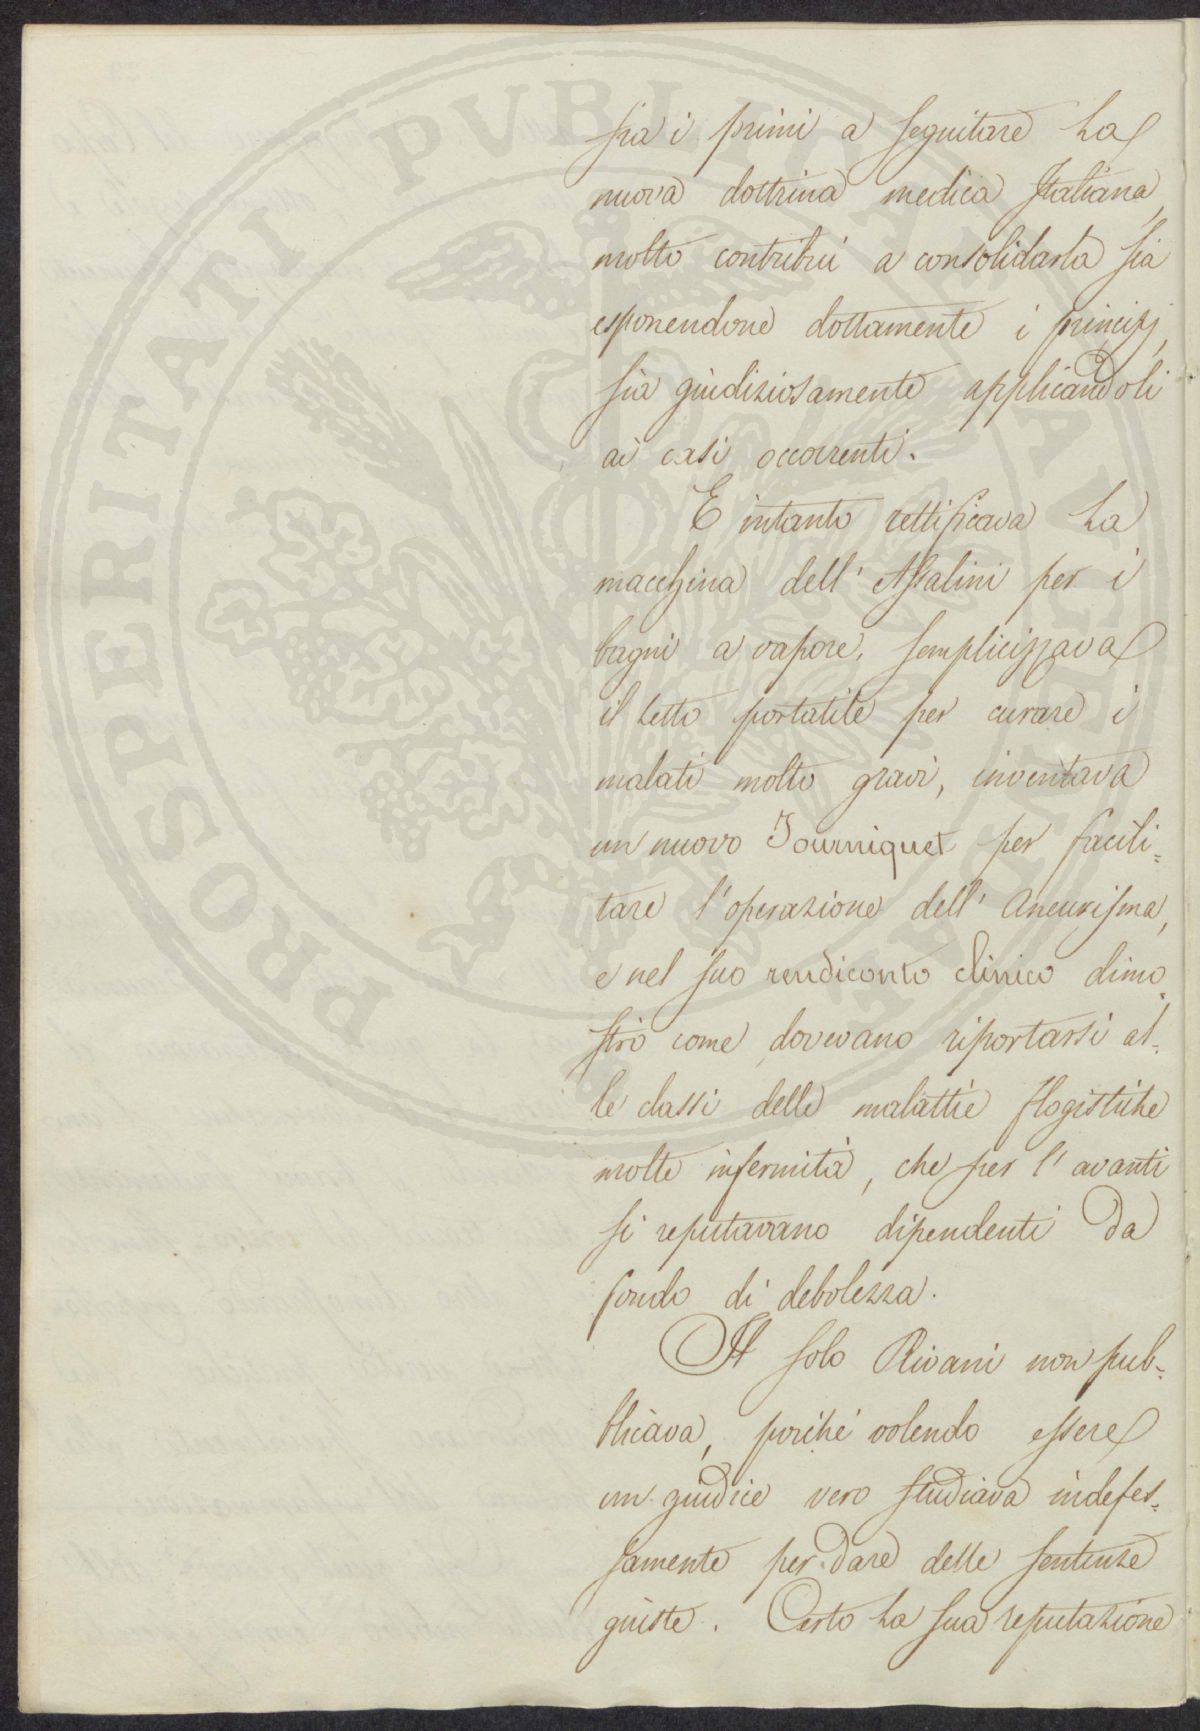 fra i primi a seguitare la
nuova dottrina medica Italiana,
molto contribuì a consolidarla sia
esponendone dottamente i principj,
sia giudiziosamente applicandoli
ai casi occorrenti.
E intanto rettificava la
macchina dell' Assalini per i
bagni a vapore, semplicizzava
il letto portatile per curare i
malati molto gravi, inventava
un nuovo Tourniquet per facili=
tare l'operazione dell' Aneurisma,
e nel suo rendiconto clinico dimo=
strò come dovevano riportarsi al=
le classi delle malattie flogistiche
molte infermità, che per l'avanti
si reputavano dipendenti da
fondo di debolezza.
Il solo Rivani non pub=
blicava, poiché volendo essere
un giudice vero studiava indefes=
samente per dare delle sentenze
giuste. Certo la sua reputazione
PROSPERITATI PVBLICAE AVGENDAE